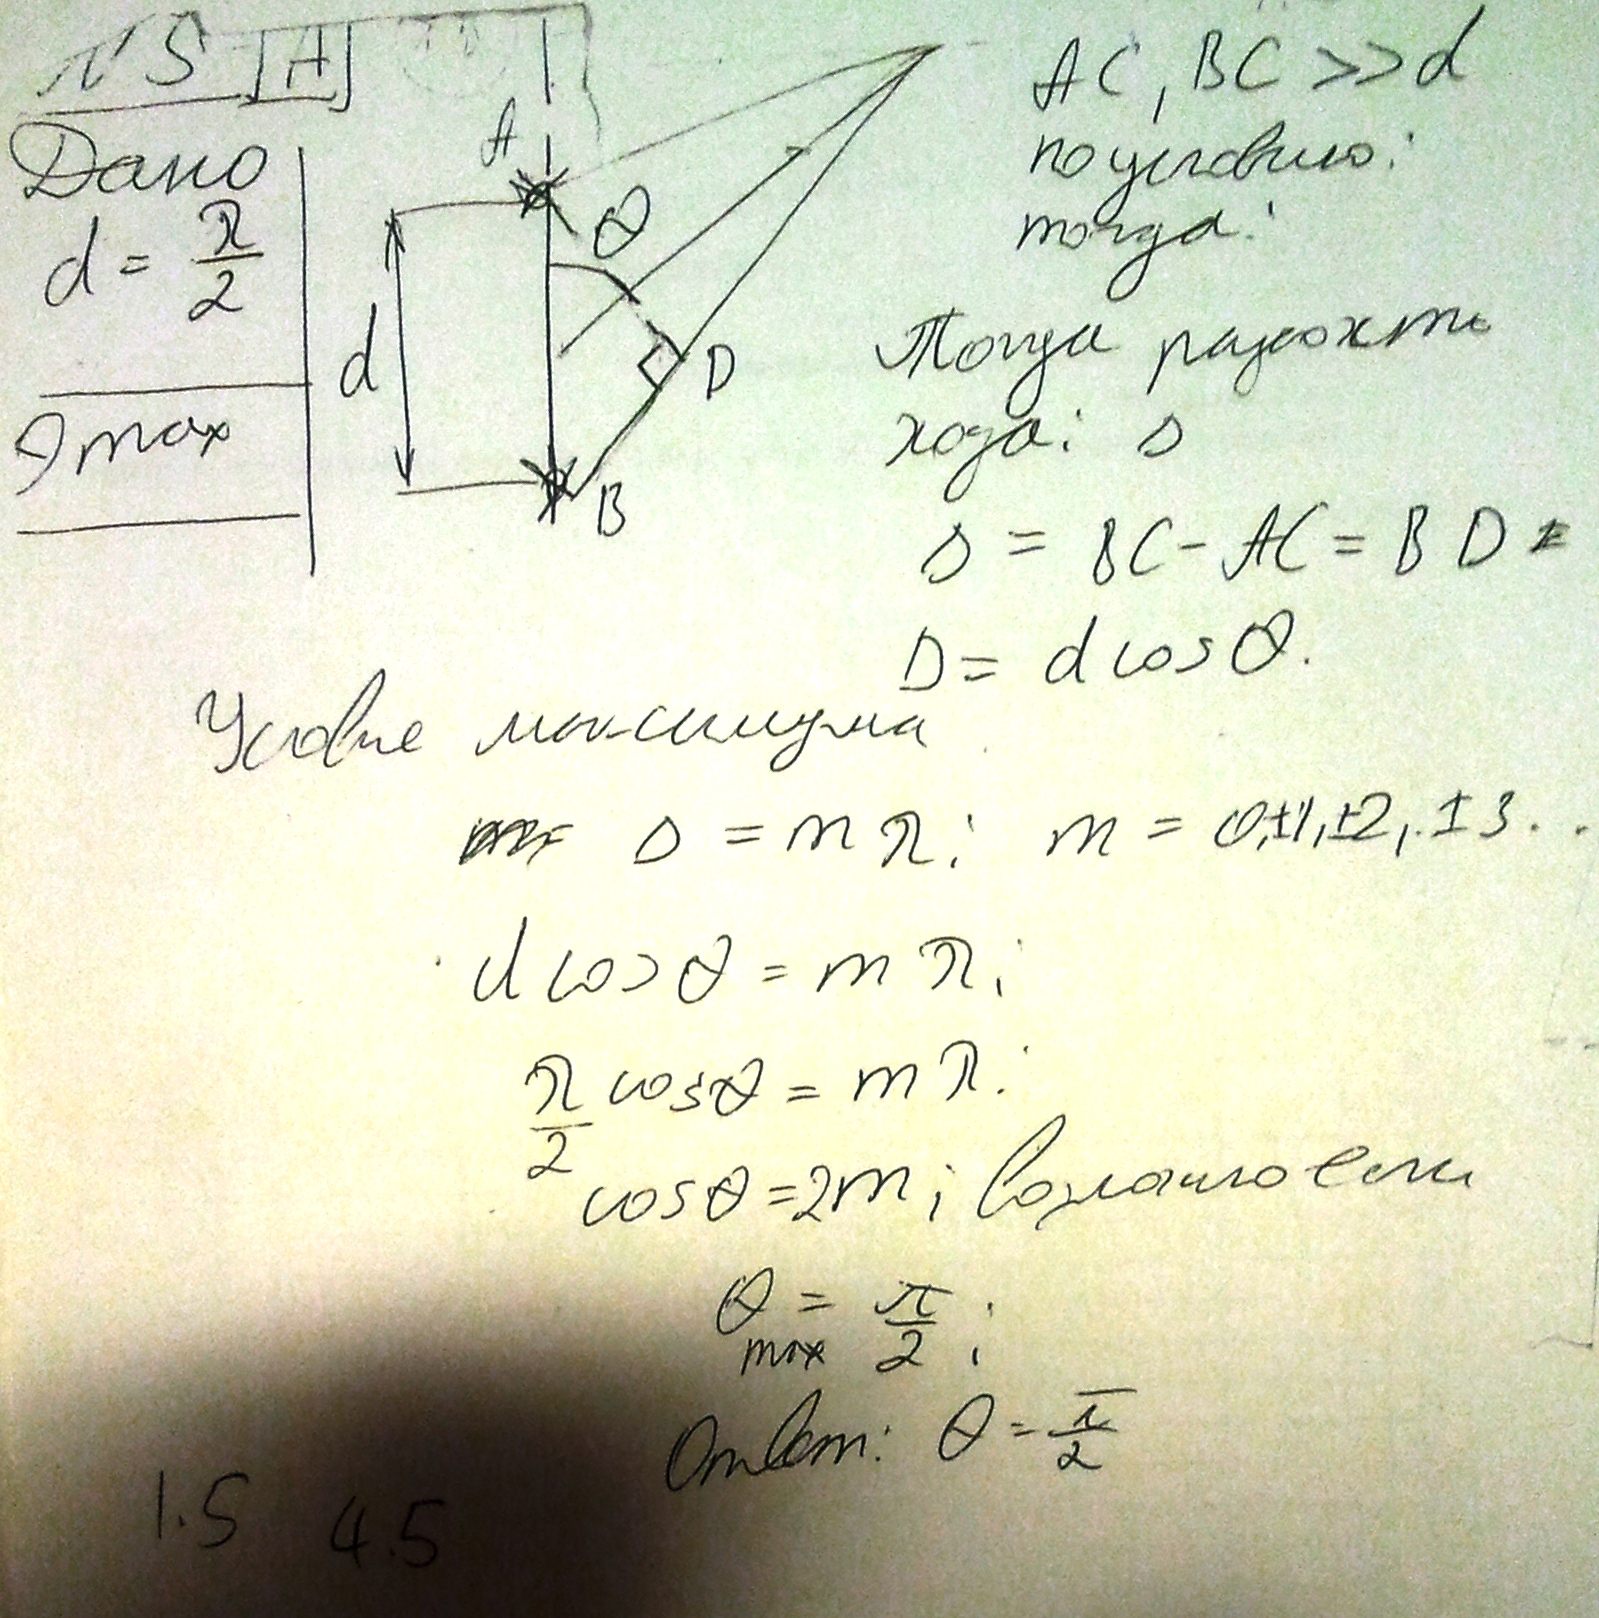 № 5 [A]
Дано
d = λ/2
θmax
A
θ
d
D
B
AC, BC >> d
по условию:
тогда:
Тогда разность
хода: Δ
Δ = BC - AC = BD =
D = d cos θ.
Условие максимума
Δ = mλ; m = 0, ±1, ±2, ±3...
d cos θ = mλ;
λ/2 cos θ = mλ;
cos θ = 2m; возможно если
θmax = π/2;
Ответ: θ = π/2
1.5 4.5